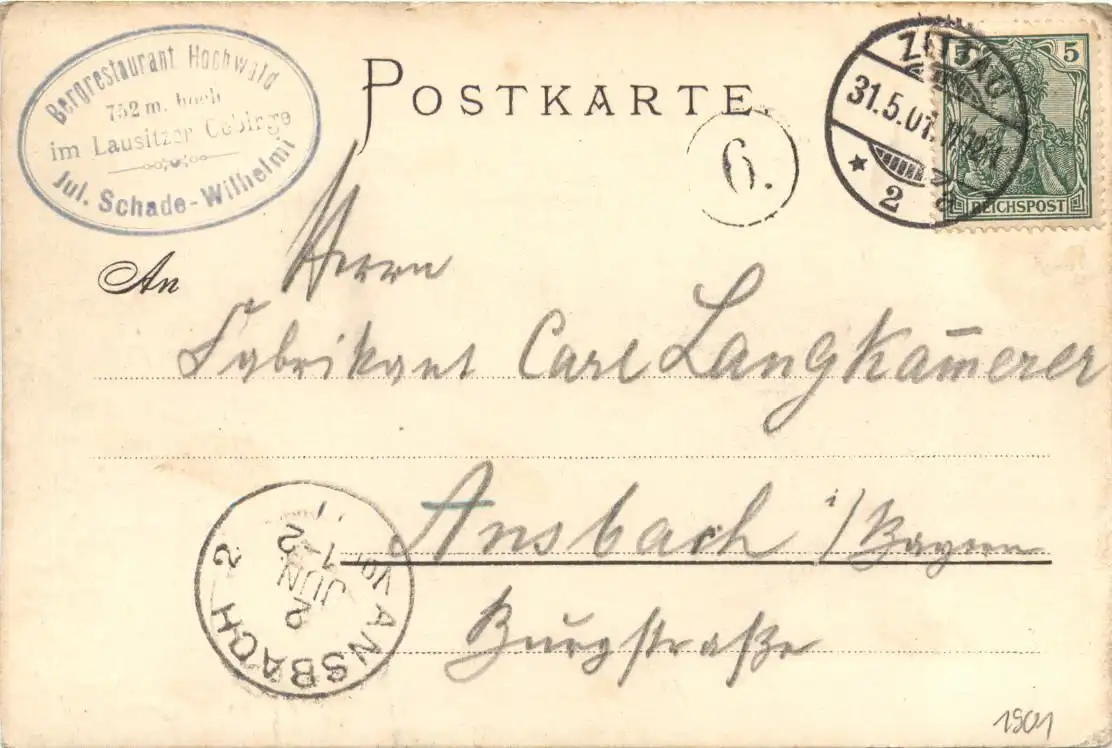 Bergrestaurant Hochwald
752 m. hoch
im Lausitzer Gebirge
Jul. Schade-Wilhelmi
POSTKARTE.
6.
ZITTAU
31.5.01.
* 2
5 5
REICHSPOST
An
Herrn
Fabrikant Carl Langkam̄erer
Ansbach i/Bayern
Burgstraße
ANSBACH 2
VOR
1-2
JUN
2
1901